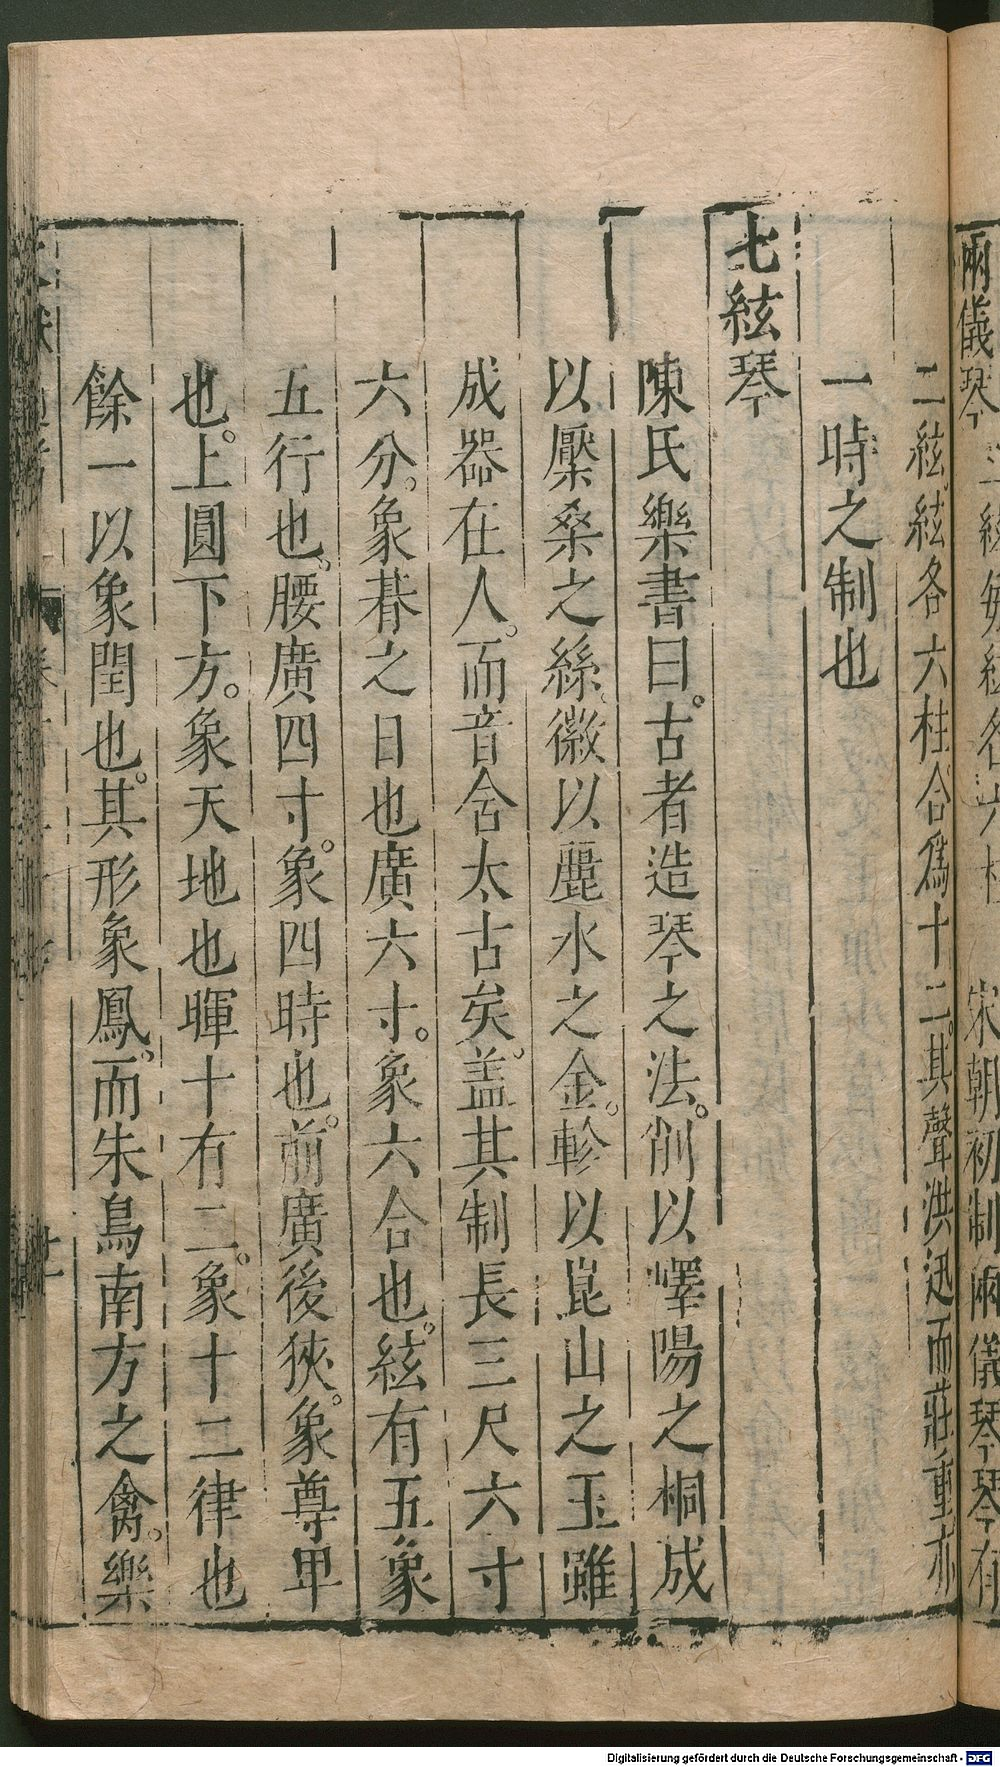 兩儀琴二絃每絃各六柱 宋朝初制兩儀琴琴有
二絃絃各六柱合爲十二其聲洪迅而莊重亦
一時之制也
七絃琴
陳氏樂書曰。古者造琴之法。削以嶧陽之桐成
以檿桑之絲。徽以麗水之金。軫以崑山之玉雖
成器在人。而音含太古矣。蓋其制長三尺六寸
六分。象朞之日也廣六寸。象六合也。絃有五象
五行也。腰廣四寸。象四時也。前廣後狹。象尊卑
也。上圓下方。象天地也暉十有二。象十二律也
餘一以象閏也。其形象鳳。而朱鳥南方之禽。樂
Digitalisierung gefördert durch die Deutsche Forschungsgemeinschaft - DFG